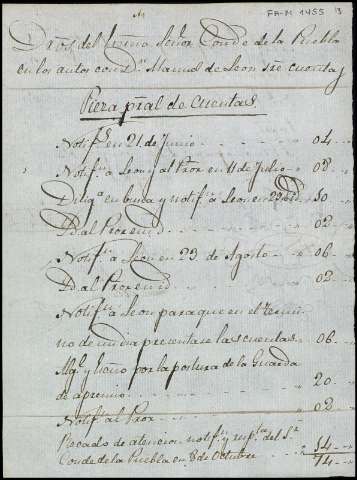 FA-M 1455 13
Dros del Exmo Señor Conde de la Puebla
en los autos con Dn. Manuel de Leon sre cuentas
Pieza pral de Cuentas.
Notifn. en 21 de Junio . . . 04 . .
Notifn. a Leon y al Pror en 11 de Julio . . 08 . .
Diliga en busca y notifn. a Leon en 29 . . 50
Id al Pror en id . . 02 . .
Notifn. a Leon en 23 de Agosto . . 06 . .
Id al Pror en id . . 02 . .
Notifn. a Leon para que en el termi
no de un dia presentare las cuentas . . 06 . .
por la postura de la Guarda
de apremio . . 20 . .
Notifn. al Pror . . 02 . .
Recado de atencion notifn. y del Sr
Conde de la Puebla en 8 de Octubre . . 54 . .
74 . .